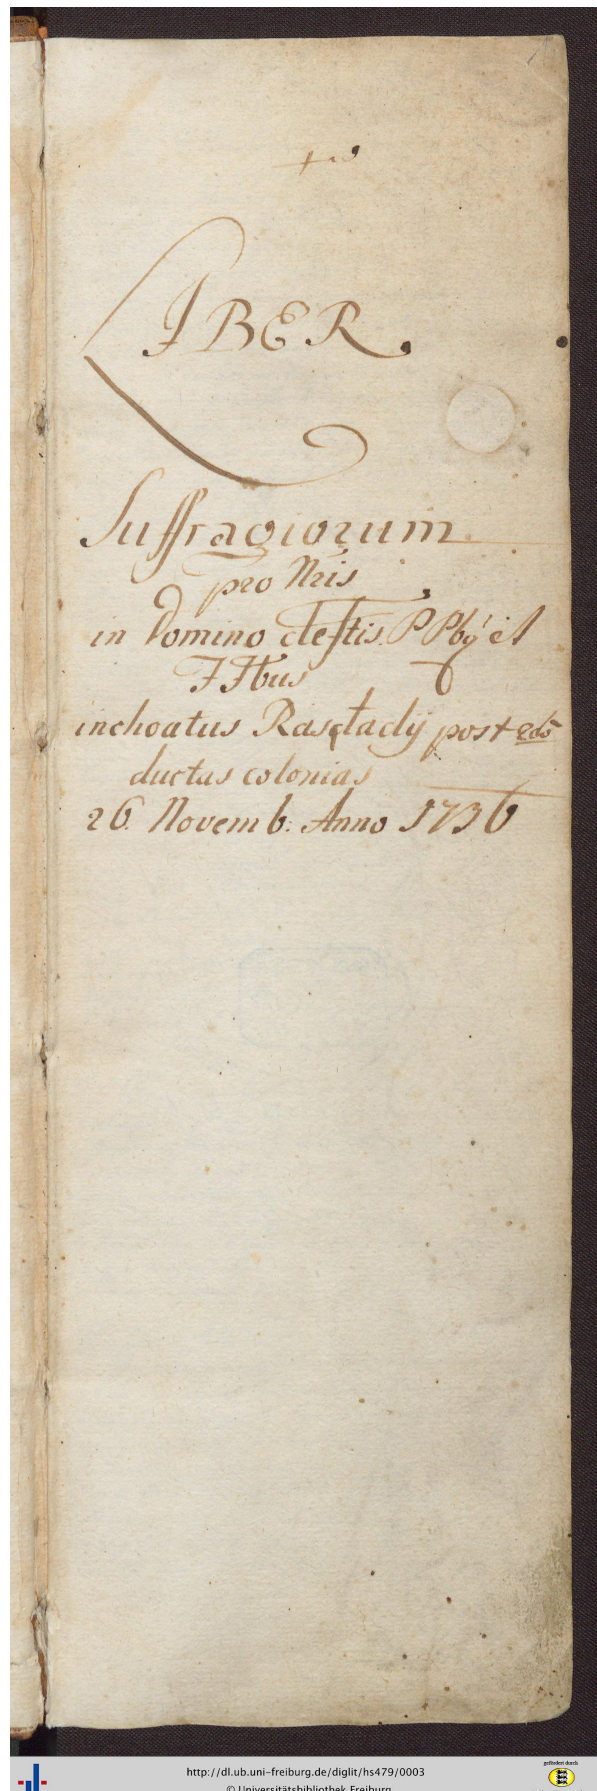 LIBER.
Suffragiorum
pro Nris
in Domino defctis. P Pbq et
FFbus
inchoatus Rastadij post
ductas colonias
26. Novemb: Anno 1736
http://dl.ub.uni-freiburg.de/diglit/hs479/0003
© Universitätsbibliothek Freiburg
gefördert durch